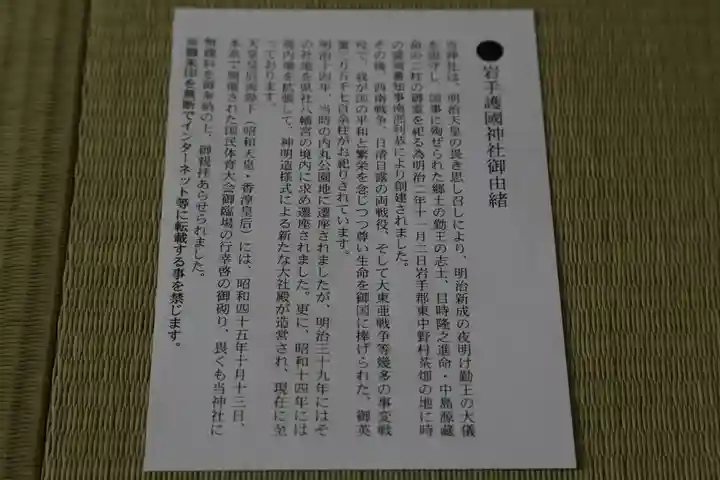 ●岩手護國神社御由緒
当神社は、明治天皇の畏き思し召しにより、明治新成の夜明け勤王の大儀
を退守し、国事に殉ぜられた郷土の勤王の志士、目時隆之進命・中島源蔵
命の二柱の御霊を祀る為明治二年十一月二日岩手郡東中野村茶畑の地に時
の盛岡藩知事南部利恭により創建されました。
その後、西南戦争、日清日露の両戦役、そして大東亜戦争等幾多の事変戦
役で、我が国の平和と繁栄を念じつつ尊い生命を御国に捧げられた、御英
霊三万五千七百余柱がお祀りされています。
明治十四年、当時の内丸公園地に遷座されましたが、明治三十九年にはそ
の社地を県社八幡宮の境内に求め遷座されました。更に、昭和十四年には
境内地を拡張して、神明造様式による新たな大社殿が造営され、現在に至
っております。
天皇皇后両陛下(昭和天皇・香淳皇后)には、昭和四十五年十月十三日、
本県で開催された国民体育大会御臨場の行幸啓の御砌り、畏くも当神社に
幣饌料を御奉納の上、御親拝あらせられました。
御朱印を無断でインターネット等に転載する事を禁じます。